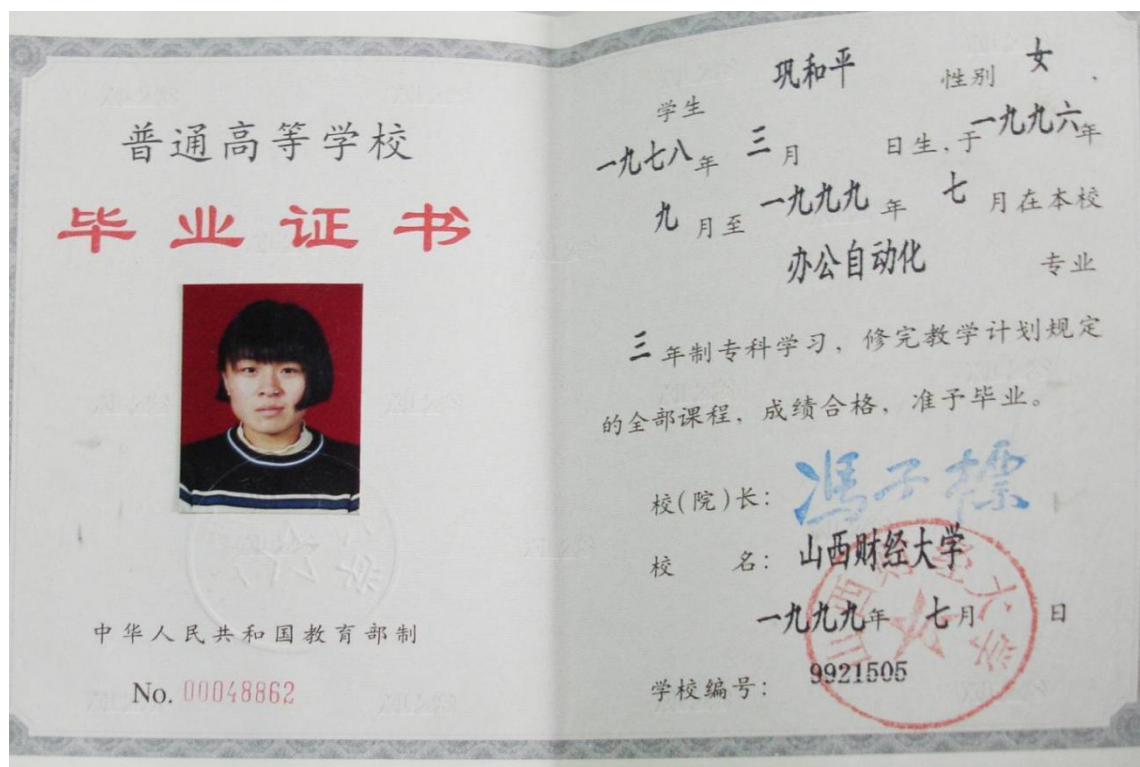 普通高等学校
毕业证书
中华人民共和国教育部制
No. 00048862
学生 巩和平 性别 女，
一九七八年 三月 日生，于一九九六年
九月至一九九九年 七月在本校
办公自动化 专业
三年制专科学习，修完教学计划规定
的全部课程，成绩合格，准予毕业。
校(院)长：冯子标
校 名：山西财经大学
一九九九年 七月 日
学校编号：9921505
山西财经大学